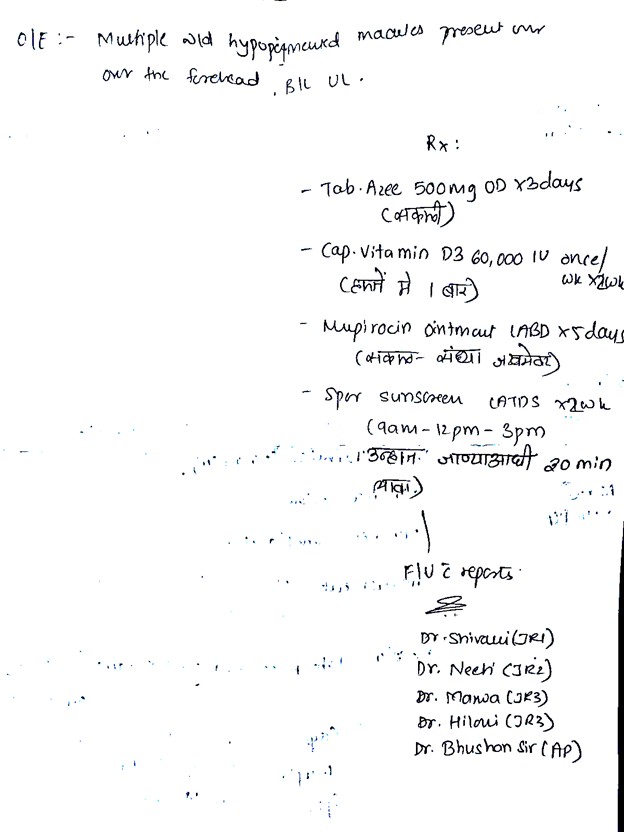 O/E :- Multiple wld hypopigmented macules present over
over the forehead, B/L UL.
Rx:
- Tab. Azee 500mg OD x3days
(सकाळी)
- Cap. Vitamin D3 60,000 IU once/
wk x2wk
(हफ्ते में 1 बार)
- Mupirocin Ointment LABD x5days
(सकाळ- संध्या जखमेवर)
- Spor sunscreen LATDS x2wk
(9am-12pm-3pm
उन्हात जाण्याआधी 20 min
लावा.)
F/U c̄ reports.
Dr. Shivani (JR1)
Dr. Neeti (JR2)
Dr. Manva (JR3)
Dr. Hiloni (JR3)
Dr. Bhushan Sir (AP)